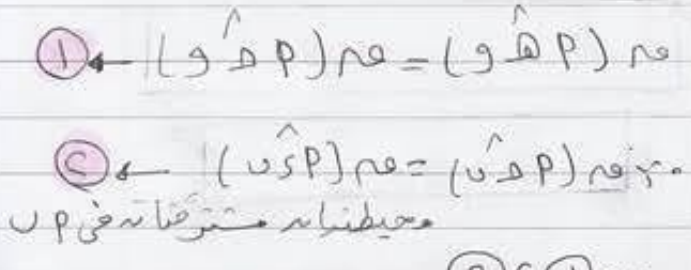 ق (أ هـ̂ و) = ق (أ حـ̂ و) ← ①
∵ ق (أ حـ̂ ب) = ق (أ ء̂ ب) ← ②
محيطيتان مشتركتان في أ ب
① ، ②